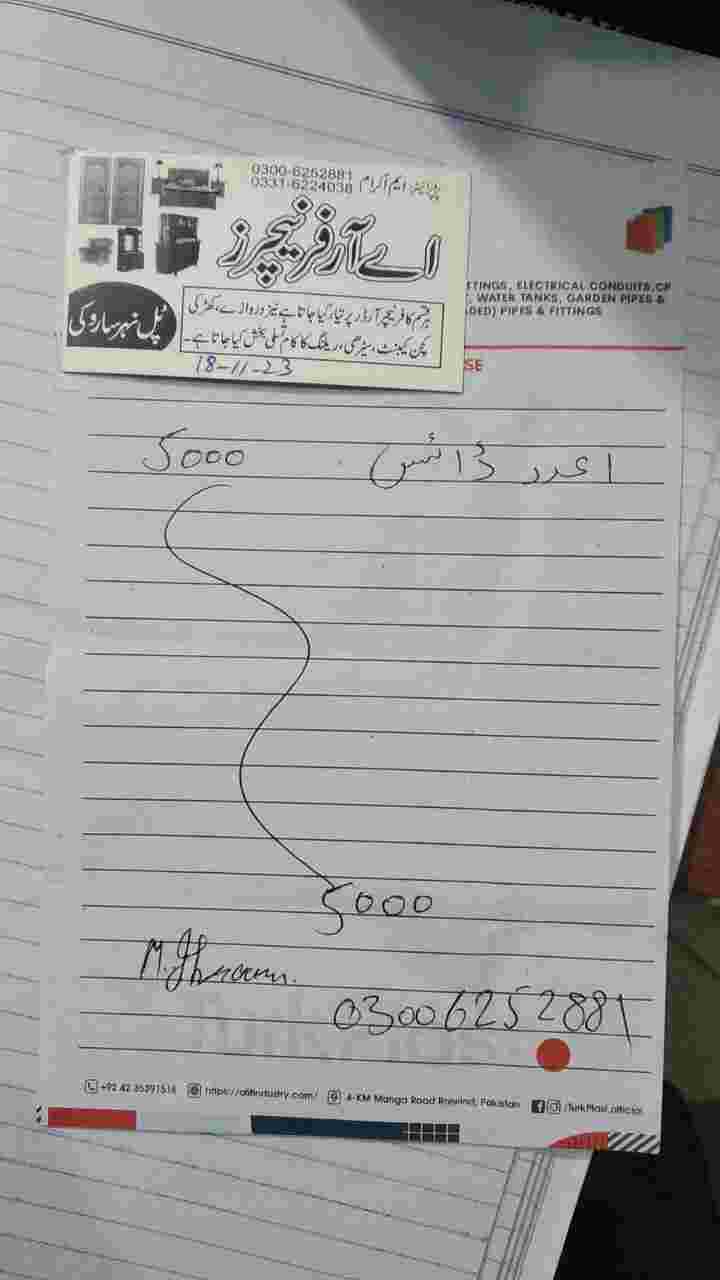 0300-6252881
0331-6224038
پروپرائیٹر: ایم اکرام
اے آر فرنیچرز
ہر قسم کا فرنیچر آرڈر پر تیار کیا جاتا ہے نیز دروازے، کھڑکی
کچن کیبنٹ، سیڑھی، ریلنگ کا کام تسلی بخش کیا جاتا ہے۔
پُل نہر ساروکی
18-11-23
TTINGS, ELECTRICAL CONDUITS,CP
, WATER TANKS, GARDEN PIPES &
DED) PIPES & FITTINGS
SE
1 عدد ڈائس 5000
5000
M.
03006252881
+92 42 35391514 https://alifindustry.com/ 4-KM Manga Road Raiwind, Pakistan /TurkPlast.official